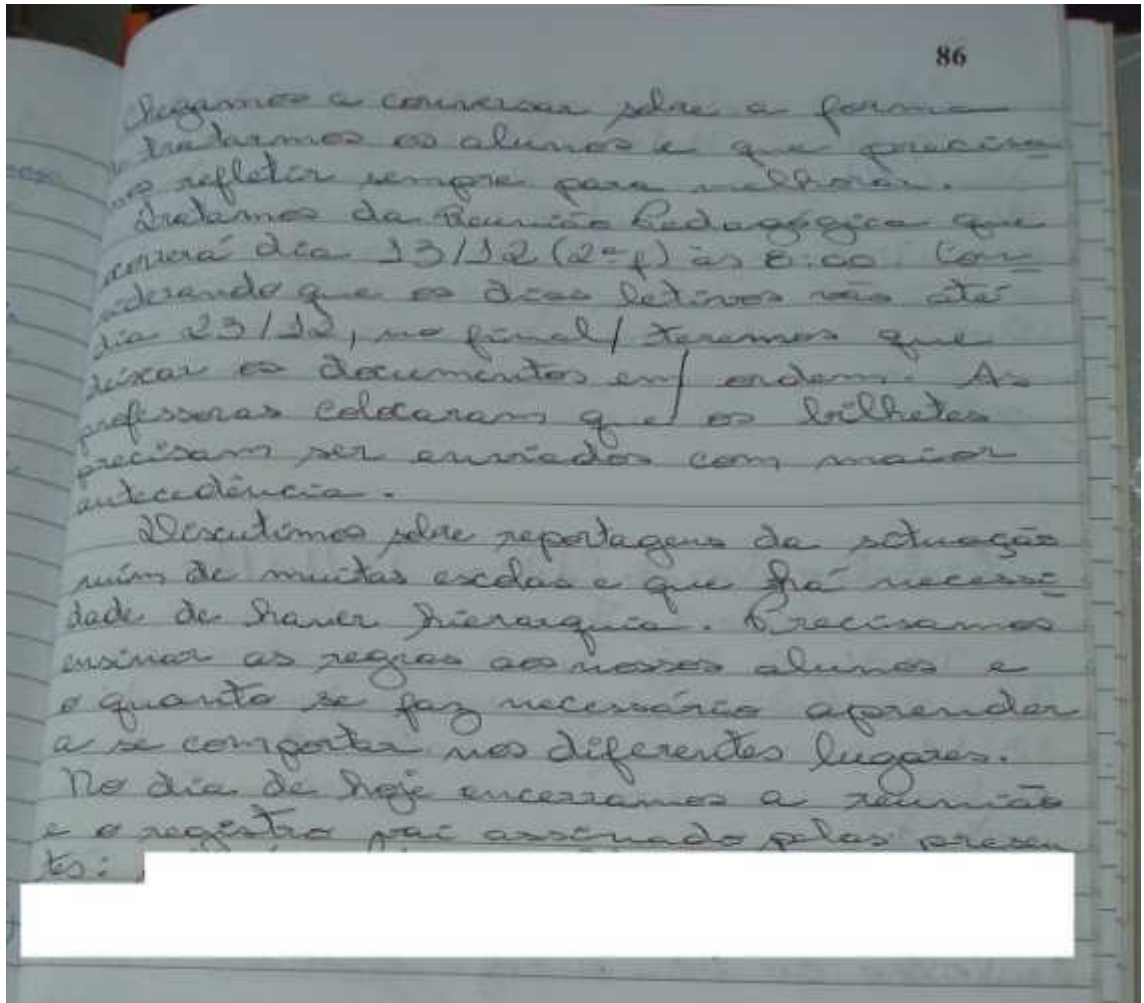 86
Chegamos a conversar sobre a forma
de tratarmos os alunos e que precisa
mos refletir sempre para melhorar.
Tratamos da Reunião Pedagógica que
ocorrerá dia 13/12 (2ª f) às 8:00. Con-
siderando que os dias letivos vão até
dia 23/12, no final/ teremos que
deixar os documentos em/ ordem. As
professoras colocaram que/ os bilhetes
precisam ser enviados com maior
antecedência.
Discutimos sobre reportagens da situação
ruim de muitas escolas e que há necessi-
dade de haver hierarquia. Precisamos
ensinar as regras aos nossos alunos e
o quanto se faz necessário aprender
a se comportar nos diferentes lugares.
No dia de hoje encerramos a reunião
e o registro vai assinado pelas presen
tes: